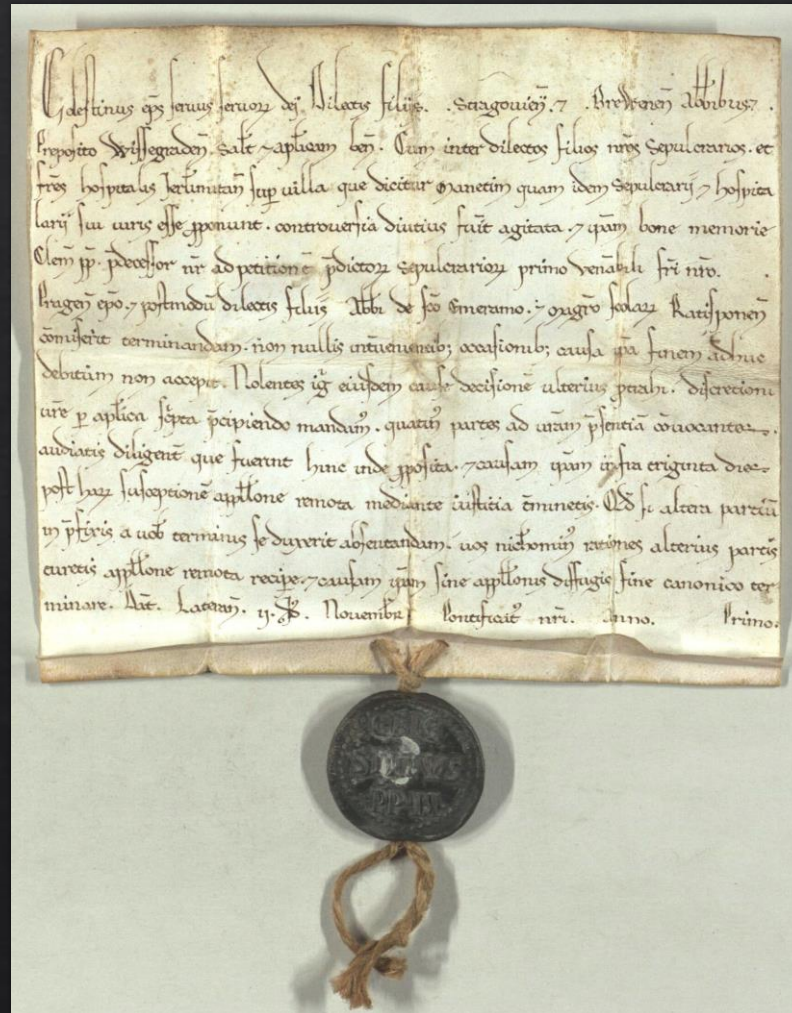 Celestinus ep̄s seruus seruoꝝ dej. Dilectis filijs. . Stragouien̄. ⁊ . Breunoren̄ Abb̄ibus ⁊ .
Preposito Wissegraden̄. Sal̄t ⁊ apl̄icam ben̄. Cum inter dilectos filios nr̄os Sepulcrarios. et
fr̄es hospitalis Ierl̄imitan̄ sup̱ uilla que dicitur Manetim quam idem Sepulcrarij ⁊ hospita
larij sui iuris esse ꝓponunt. controuersia diutius fuīt agitata. ⁊ ip̄am bone memorie
Clem̄ pp̄. p̄decessor nr̄ ad petitionē p̄dictoꝝ Sepulcrarioꝝ primo uen̄abili fr̄i nr̄o. .
Pragen̄ ep̄o. ⁊ postmodū dilectis filijs Abb̄i de sc̄o Emeramo. ⁊ magr̄o scolaꝝ Ratisponen̄
cōmiserit terminandam. non nullis int̄uenientib; occasionib; causa ip̄a finem adhuc
debitum non accepit. Nolentes iḡ eiusdem cause decisionē ulterius ꝓtrahi. discretioni
ur̄e ꝑ apl̄ica sc̄pta p̄cipiendo mandam᷒. quatin᷒ partes ad ur̄am p̄sentiā cōuocantes.
audiatis diligent̄ que fuerint hinc inde ꝓposita. ⁊ causam ip̄am infra triginta dies
post haꝝ susceptionē appll̄one remota mediante iustitia t̄minetis. Qd̄ si altera partiū
in p̄fixis a uob̄ terminis se duxerit absentandam. uos nich̄omin᷒ rationes alterius partis
curetis appll̄one remota recipe. ⁊ causam ip̄am sine appll̄onis diffugis fine canonico ter
minare. Dat̄. Lateran̄. ij. kl̄. Nouembr̄ Pontificat᷒ nr̄i. Anno. Primo.
CELE
STINVS
PP III